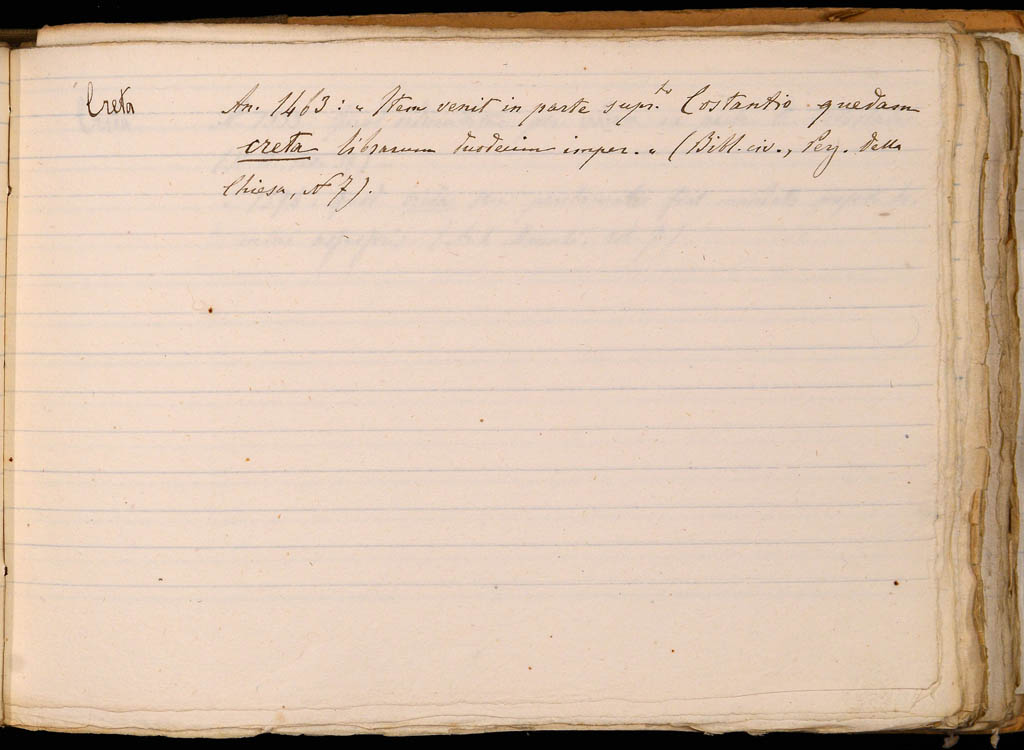 Creta An. 1463: „ Item venit in parte supr.to Costantio quedam
creta librarum duodecim imper. „ (Bibl. civ., Perg. della
Chiesa, N 7).